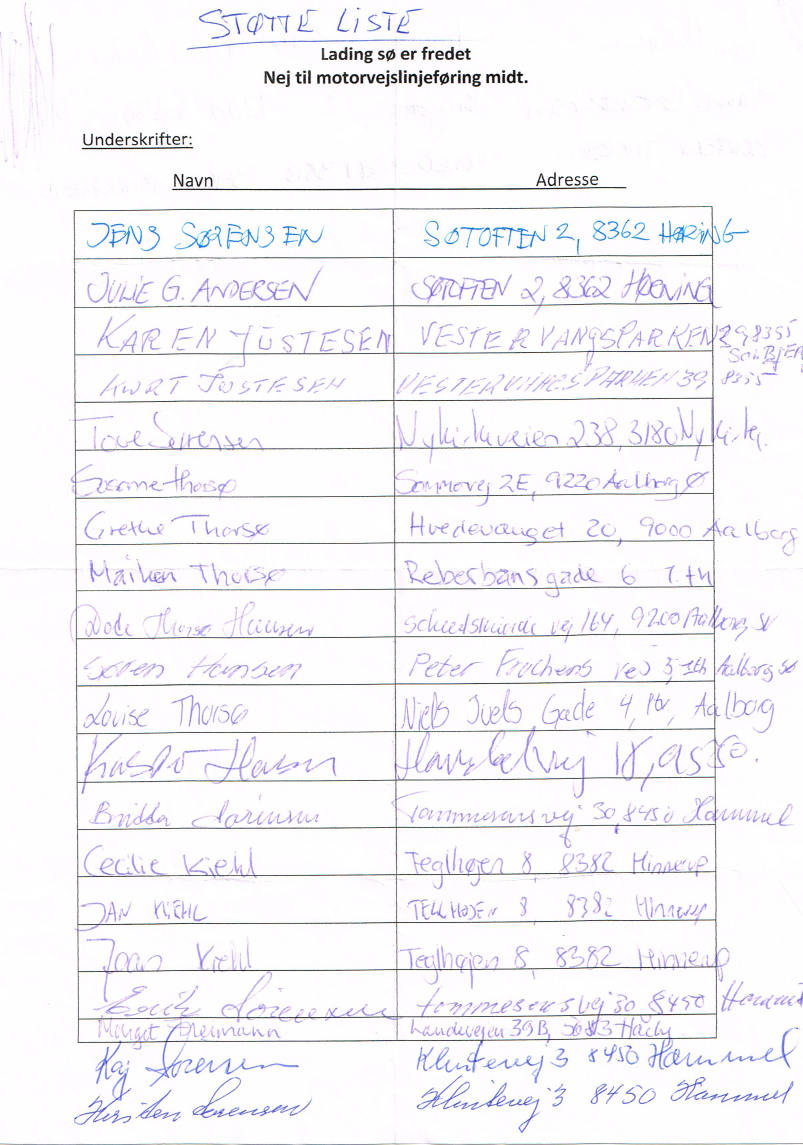 STØTTE LISTE
Lading sø er fredet
Nej til motorvejslinjeføring midt.
Underskrifter:
Navn Adresse
JENS SØRENSEN SØTOFTEN 2, 8362 HØRING
JULIE G. ANDERSEN SØTOFTEN 2, 8362 HØRNING
KAREN JUSTESEN VESTERVANGSPARKEN 29, 8355
SOLBJERG
KURT JUSTESEN VESTERVANGSPARKEN 39, 8355
Tove Sørensen Nykirkeveien 238, 3180 Nykirke.
Susanne Thorsø 2E, 9220 Aalborg Ø
Grethe Thorsø Hvedevænget 20, 9000 Aalborg
Maiken Thorsø Reberbansgade 6 1. th
Thorsø Hansen vej 164, 9200 Aalborg, SV
Søren Hansen Peter Freuchens vej 3, 1th Aalborg SØ
Louise Thorsø Niels Juels Gade 4, Aalborg
18,
Britta Sørensen Tommesensvej 30, 8450 Hammel
Cecilie Kiehl Teglhøjen 8, 8382 Hinnerup
JAN KIEHL TELLHØJEN 8, 8382 Hinnerup
Joan Kiehl Teglhøjen 8, 8382 Hinnerup
Sørensen Tommesensvej 30 8450 Hammel
Margit Landevejen 39B,
Kaj Sørensen Klintevej 3 8450 Hammel
Kirsten Sørensen Klintevej 3 8450 Hammel